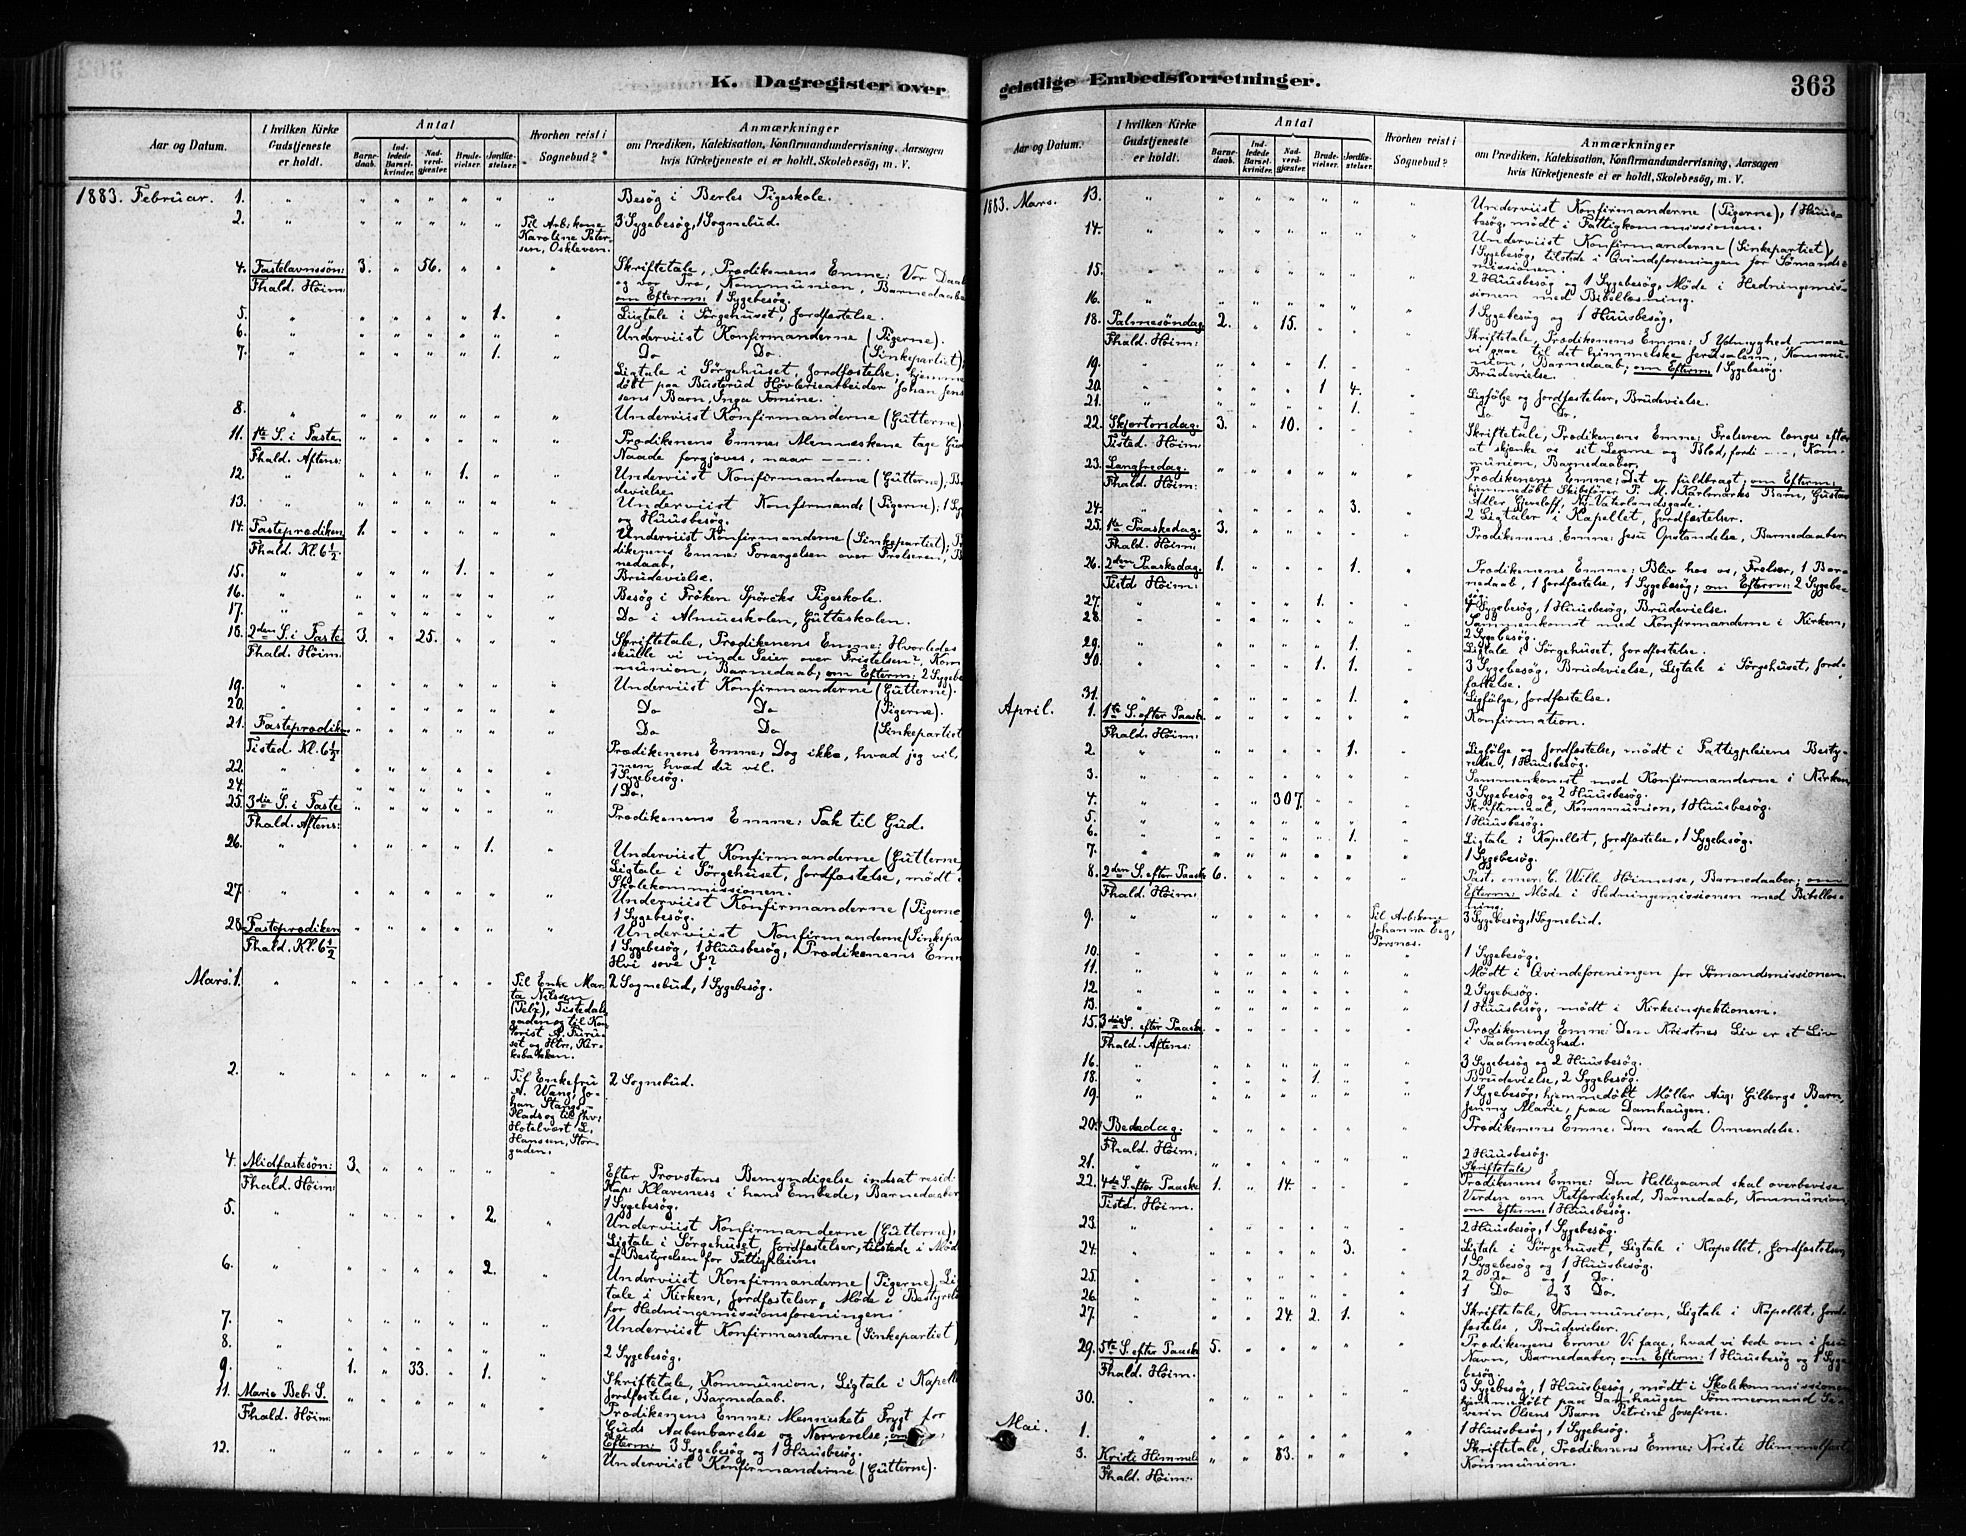 K. Dagregister over
Aar og Datum.
I hvilken Kirke Gudstjeneste er holdt.
Antal
Barnedaab.
Indledede Barselkvinder.
Nadverdgjæster.
Brudevielser.
Jordfæstelser.
Hvorhen reist i Sognebud?
Anmærkninger
om Prædiken, Katekisation, Konfirmandundervisning, Aarsagen
hvis Kirketjeneste ei er holdt, Skolebesøg, m. V.
1883. Februar. 1. " " " " " " " Besøg i Berles Pigeskole.
2. " " " " " " Til Arb.kone 3 Sygebesøg, 1 Sognebud.
Karoline Peter-
sen, Oskleven.
4. Fastelavnssøn: 3. " 56. " " " Skriftetale, Prædikenens Emne: Vor Daab
Fhald. Høim: og vor Tro, Kommunion, Barnedaab
om Efterm: 1 Sygebesøg.
5. " " " " " 1. " Liigtale i Sørgehuset, Jordfæstelse.
6. " " " " " " " Underviist Konfirmanderne (Pigerne).
7. " " " " " 1. " Do Do (Sinkepartiet),
Ligtale i Sørgehuset, Jordfæstelse, hjemme
døbt paa Busterud Høvleriearbeider Johan Jen
sens Barn, Inga Tomine.
8. " " " " " " " Underviist Konfirmanderne (Gutterne)
11. 1ste S. i Faste. " " " " " " Prædikenens Emne: Menneskene tage Guds
Fhald. Aftens: Naade forgjæves, naar ----
12. " " " " 1. " " Underviist Konfirmanderne (Gutterne), B
devielse.
13. " " " " " " " Underviist Konfirmande (Pigerne), 1 Sy
og Huusbesøg.
14. Fasteprædiken 1. " " " " " Underviist Konfirmanderne (Sinkepartiet), Pr
Fhald. Kl. 6½. dikenens Emne: Forargelsen over Frelseren, B
nedaab.
15. " " " " 1. " " Brudevielse.
16. " " " " " " " Besøg i Frøken Spørcks Pigeskole.
17. " " " " " " " Do i Almueskolen, Gutteskolen.
18. 2den S. i Faste 3. " 25. " " " Skriftetale, Prædikenens Emne: Hvorledes
Fhald. Høim. skulle vi vinde Seier over Fristelsen?, Kom
munion, Barnedaab; om Efterm: 2 Sygebe
19. " " " " " " " Underviist Konfirmanderne (Gutterne).
20. " " " " " " " Do Do (Pigerne).
21. Fasteprædiken " " " " " " Do Do (Sinkepartiet
Tisted Kl. 6½ Prædikenens Emne: Dog ikke, hvad jeg vil,
men hvad du vil.
22. " " " " " " " 1 Sygebesøg.
24. " " " " " " " 1 Do.
25. 3die S. i Faste " " " " " " Prædikenens Emne: Tak til Gud.
Fhald. Aftens:
26. " " " " " 1. " Underviist Konfirmanderne (Gutterne
Ligtale i Sørgehuset, Jordfæstelse, mødt i
Skolekommissionen.
27. " " " " " " " Underviist Konfirmanderne (Pigerne
1 Sygebesøg.
28. Fasteprædiken " " " " " " Underviist Konfirmanderne (Sinkepa
Fhald. Kl. 6½ 1 Sygebesøg, 1 Huusbesøg, Prædikenens Emn
Hvi sove I?
Mars. 1. " " " " " " Til Enke Mar- 2 Sognebud, 1 Sygebesøg.
ta Nilssen
(Pelz), Tistedals
gaden og til Kon
torist A. Furu
set og Htr, Kir-
kebakken.
2. " " " " " " Til Enkefru 2 Sognebud.
A. Wang, Jo-
han Stangs
Plads og til fhv:
Hotelvært L.
Hansen, Stor-
gaden.
4. Midfastesøn: 3. " " " " " Efter Provstens Bemyndigelse indsat resid.
Fhald. Høim: Kap: Klaveness i hans Embede, Barnedaaber
1 Sygebesøg.
5. " " " " " 2. " Underviist Konfirmanderne (Gutterne),
Ligtale i Sørgehuset, Jordfæstelser, tilstede i Mød
af Bestyrelsen for Fattigpleien.
6. " " " " " 2. " Underviist Konfirmanderne (Pigerne), Li
tale i Kirken, Jordfæstelser, Møde i Bestyrels
for Hedningemissionsforeningen.
7. " " " " " " " Underviist Konfirmanderne (Sinkepartiet)
8. " " " " " " " 2 Sygebesøg.
9. " 1. " 33. " 1. " Skriftetale, Kommunion, Ligtale i Kapell
Jordfæstelse, Barnedaab.
11. Mariæ Beb. S. " " " " " " Prædikenens Emne: Menneskets Frygt for
Fhald. Høim: Guds Aabenbarelse og Nærværelse; om
Efterm: 3 Sygebesøg og 1 Huusbesøg.
12. " " " " " " " Underviist Konfirmanderne (Gutterne).
geistlige Embedsforretninger.
363
Aar og Datum.
I hvilken Kirke Gudstjeneste er holdt.
Antal
Barnedaab.
Indledede Barselkvinder.
Nadverdgjæster.
Brudevielser.
Jordfæstelser.
Hvorhen reist i Sognebud?
Anmærkninger
om Prædiken, Katekisation, Konfirmandundervisning, Aarsagen
hvis Kirketjeneste ei er holdt, Skolebesøg, m. V.
1883. Mars. 13. " " " " " " " Underviist Konfirmanderne (Pigerne), 1 Huus-
besøg, mødt i Fattigkommissionen.
14. " " " " " " " Underviist Konfirmanderne (Sinkepartiet),
1 Sygebesøg, tilstede i Qvindeforeningen for Sømands-
missionen.
15. " " " " " " " 2 Huusbesøg og 1 Sygebesøg, Møde i Hedningemis-
sionen med Bibellæsning.
16. " " " " " " " 1 Sygebesøg og 1 Huusbesøg.
18. Palmesøndag. 2. " 15. " " " Skriftetale, Prædikenens Emne: I Ydmyghed maae
Fhald. Høim: vi gaae til det himmelske Jerusalem, Kommu-
nion, Barnedaab; om Efterm: 1 Sygebesøg.
19. " " " " 1. " " Brudevielse.
20. " " " " 1 4. " Ligfølge og Jordfæstelser, Brudevielse.
21. " " " " " 1. " Do og Do.
22. Skjærtorsdag. 3. " 10. " " " Skriftetale, Prædikenens Emne: Frelseren længes efter
Tisted. Høim: at skjenke os sit Legeme og Blod, fordi ---, Kom-
munion, Barnedaaber.
23. Langfredag. " " " " " " Prædikenens Emne: Det er fuldbragt; om Efterm:
Fhald. Høim: hjemmedøbt Skibsfører P. M. Karlmarks Barn, Gustav
Adler Gjerløff, N: Vaterlandsgade.
24. " " " " " 3. " 2 Ligtaler i Kapellet, Jordfæstelser.
25. 1ste Paaskedag. 3. " " " " " Prædikenens Emne: Jesu Opstandelse, Barnedaaber.
Fhald. Høim:
26. 2den Paaskedag. 1. " " " 1. " Prædikenens Emne: Bliv hos os, Frelser, 1 Bar-
Tistd Høim: nedaab, 1 Jordfæstelse, 1 Sygebesøg; om Efterm: 2 Sygebe-
søg.
27. " " " " 1. " " 4 Sygebesøg, 1 Huusbesøg, Brudevielse.
28. " " " " " " " Sammenkomst med Konfirmanderne i Kirken,
2 Sygebesøg.
29. " " " " " 1. " Ligtale i Sørgehuset, Jordfæstelse.
30. " " " " 1. 1. " 3 Sygebesøg, Brudevielse, Ligtale i Sørgehuset, Jord-
fæstelse.
31. " " " " " 1. " Ligfølge, Jordfæstelse.
April. 1. 1ste S. efter Paaske " " " " " " Konfirmation.
Fhald. Høim:
2. " " " " " 1. " Ligfølge og Jordfæstelse, mødt i Fattigpleiens Besty-
relse, 1 Huusbesøg.
3. " " " " " " " Sammenkomst med Konfirmanderne i Kirken,
3 Sygebesøg og 2 Huusbesøg.
4. " " " 307. " " " Skriftemaal, Kommunion, 1 Huusbesøg.
5. " " " " " " " 1 Huusbesøg.
6. " " " " " 1. " Ligtale i Kapellet, Jordfæstelse, 1 Sygebesøg.
7. " " " " " " " 1 Sygebesøg.
8. 2den S. efter Paaske 6. " " " " " Past. emer: C. Wille Høimesse, Barnedaaber; om
Fhald. Høim: Efterm: Møde i Hedningemissionen med Bibellæs-
ning.
9. " " " " " " Til Arb:kone 3 Sygebesøg, 1 Sognebud.
Johanna Eeg,
Porsnæs.
10. " " " " " " " 1 Sygebesøg.
11. " " " " " " " Mødt i Qvindeforeningen for Sømandsmissionen.
12. " " " " " " " 2 Sygebesøg.
13. " " " " " " " 1 Huusbesøg, mødt i Kirkeinspektionen.
15. 3die S. efter Paaske " " " " " " Prædikenens Emne: Den Kristnes Liv er et Liv
Fhald. Aftens: i Taalmodighed.
16. " " " " " " " 3 Sygebesøg og 2 Huusbesøg.
18. " " " " 1. " " Brudevielse, 2 Sygebesøg.
19. " " " " " " " 1 Sygebesøg; hjemmedøbt Møller Aug: Gilbergs Barn,
Jenny Marie, paa Damhaugen.
20. Bededag. " " " " " " Prædikenens Emne: Den sande Omvendelse.
Fhald. Høim:
21. " " " " " " " 2 Huusbesøg.
Skriftetale
22. 4de S. efter Paaske 1. " 14. " " " Prædikenens Emne: Den Helligaand skal overbevise
Tistd. Høim. Verden om Retfærdighed, Barnedaab, Kommunion
om Efterm: 1 Huusbesøg.
23. " " " " " " " 2 Huusbesøg, 1 Sygebesøg.
24. " " " " " 3. " Ligtale i Sørgehuset, Ligtale i Kapellet, Jordfæstelser,
1 Sygebesøg og 1 Huusbesøg.
25. " " " " " " " 2 Do og 1 Do.
26. " " " " " " " 1 Do og 3 Do.
27. " " " 24. 2. 1. " Skriftetale, Kommunion, Ligtale i Kapellet, Jord-
fæstelse, Brudevielser.
29. 5te S. efter Paaske 5. " " " " " Prædikenens Emne: Vi faae, hvad vi bede om i Jesu
Fhald. Høim. Navn, Barnedaaber; om Efterm: 1 Huusbesøg og 1 Syge-
besøg.
30. " " " " " " " 3 Sygebesøg, 1 Huusbesøg, mødt i Skolekommissionen
hjemmedøbt paa Damhaugen Tømmermand Se-
verin Olsens Barn Petrine Josefine.
Mai. 1. " " " " " " " 1 Huusbesøg, 1 Sygebesøg.
3. Kristi Himmelf " " 83. " " " Skriftetale, Prædikenens Emne: Kristi Himmelfart,
Fhald. Høim: Kommunion.